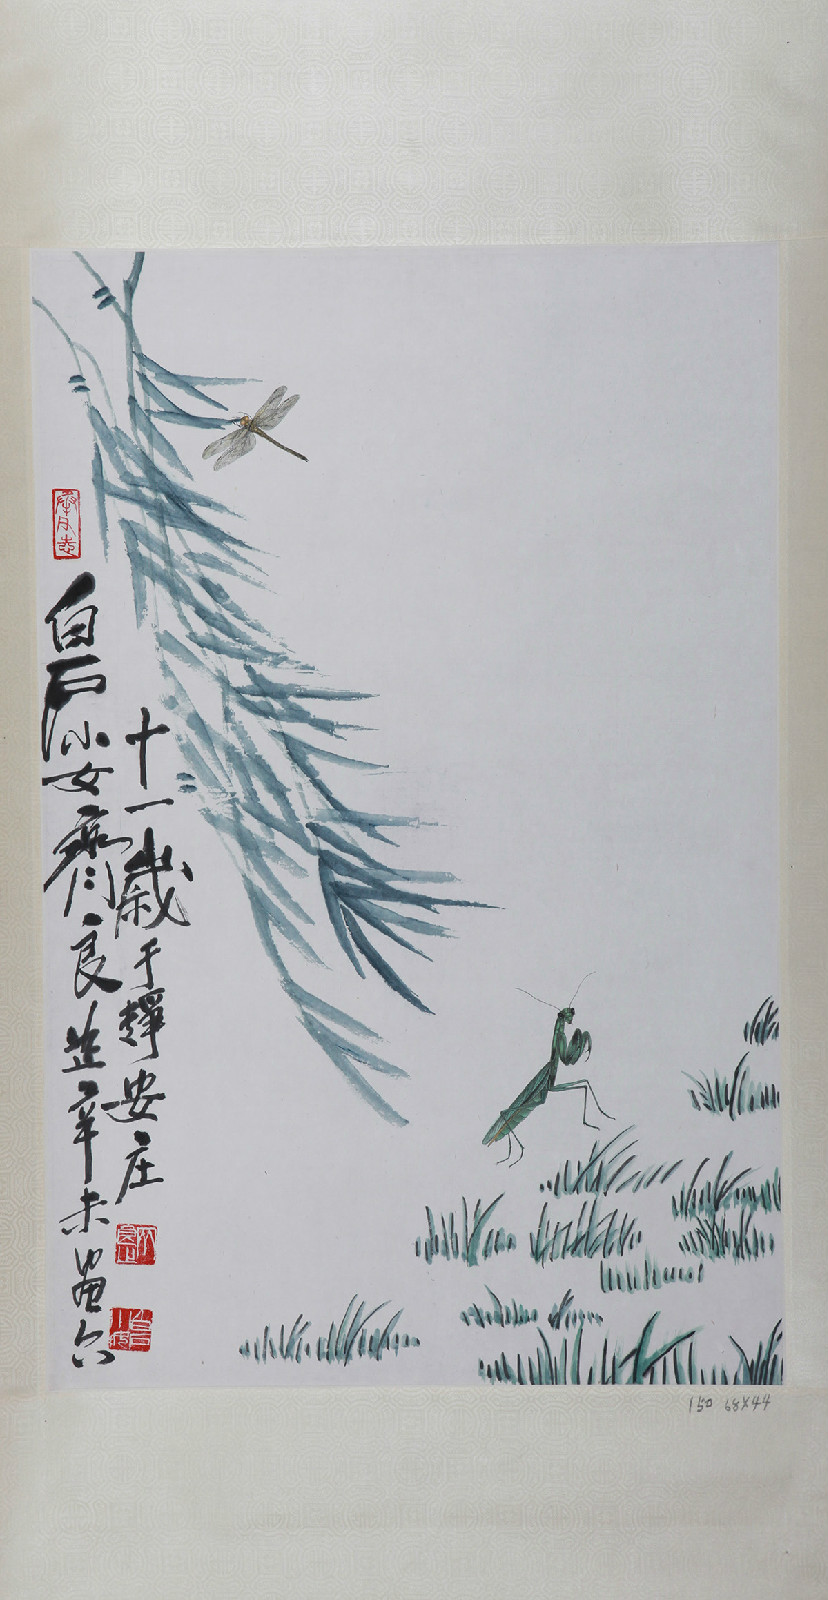 白石小女齊良芷辛未畫六
十一歲于靜安庄
150 68X44